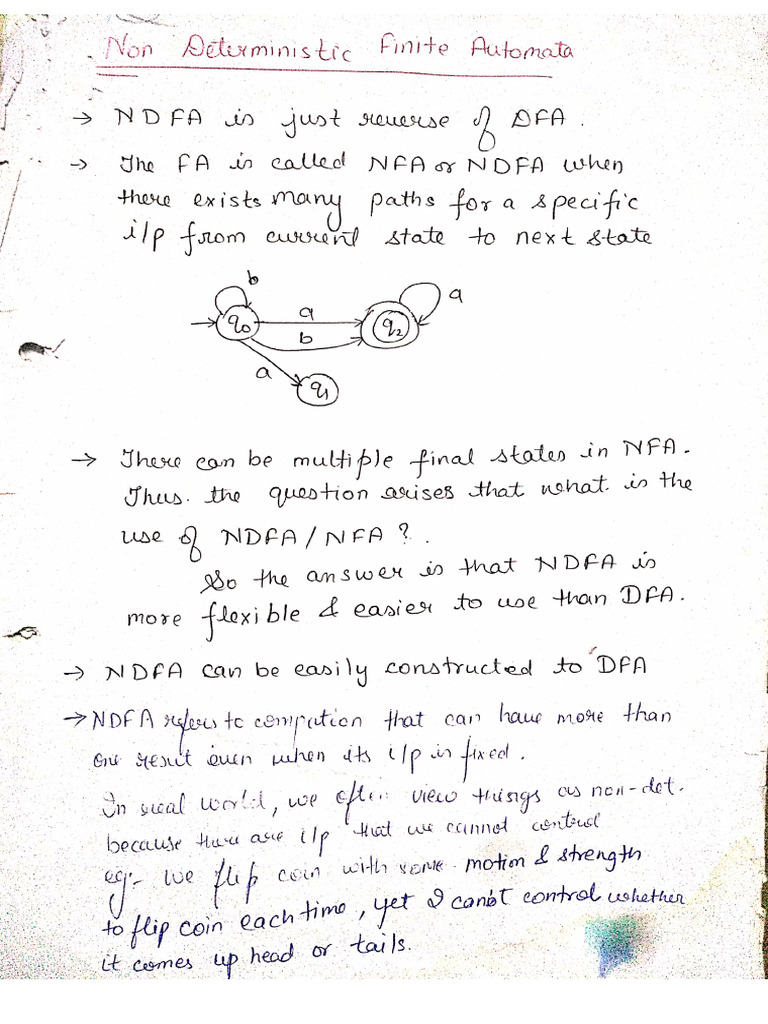 Non Deterministic Finite Automata
→ NDFA is just reverse of DFA.
→ The FA is called NFA or NDFA when
there exists many paths for a specific
i/p from current state to next state
b
q0
a
b
q2
a
a
q1
→ There can be multiple final states in NFA.
Thus. the question arises that what is the
use of NDFA/NFA ?.
So the answer is that NDFA is
more flexible & easier to use than DFA.
→ NDFA can be easily constructed to DFA
→ NDFA refers to compution that can have more than
one result even when its i/p is fixed.
In real world, we often view things as non-det.
because there are i/p that we cannot control
eg:- we flip coin with some motion & strength
to flip coin each time, yet I can't control whether
it comes up head or tails.